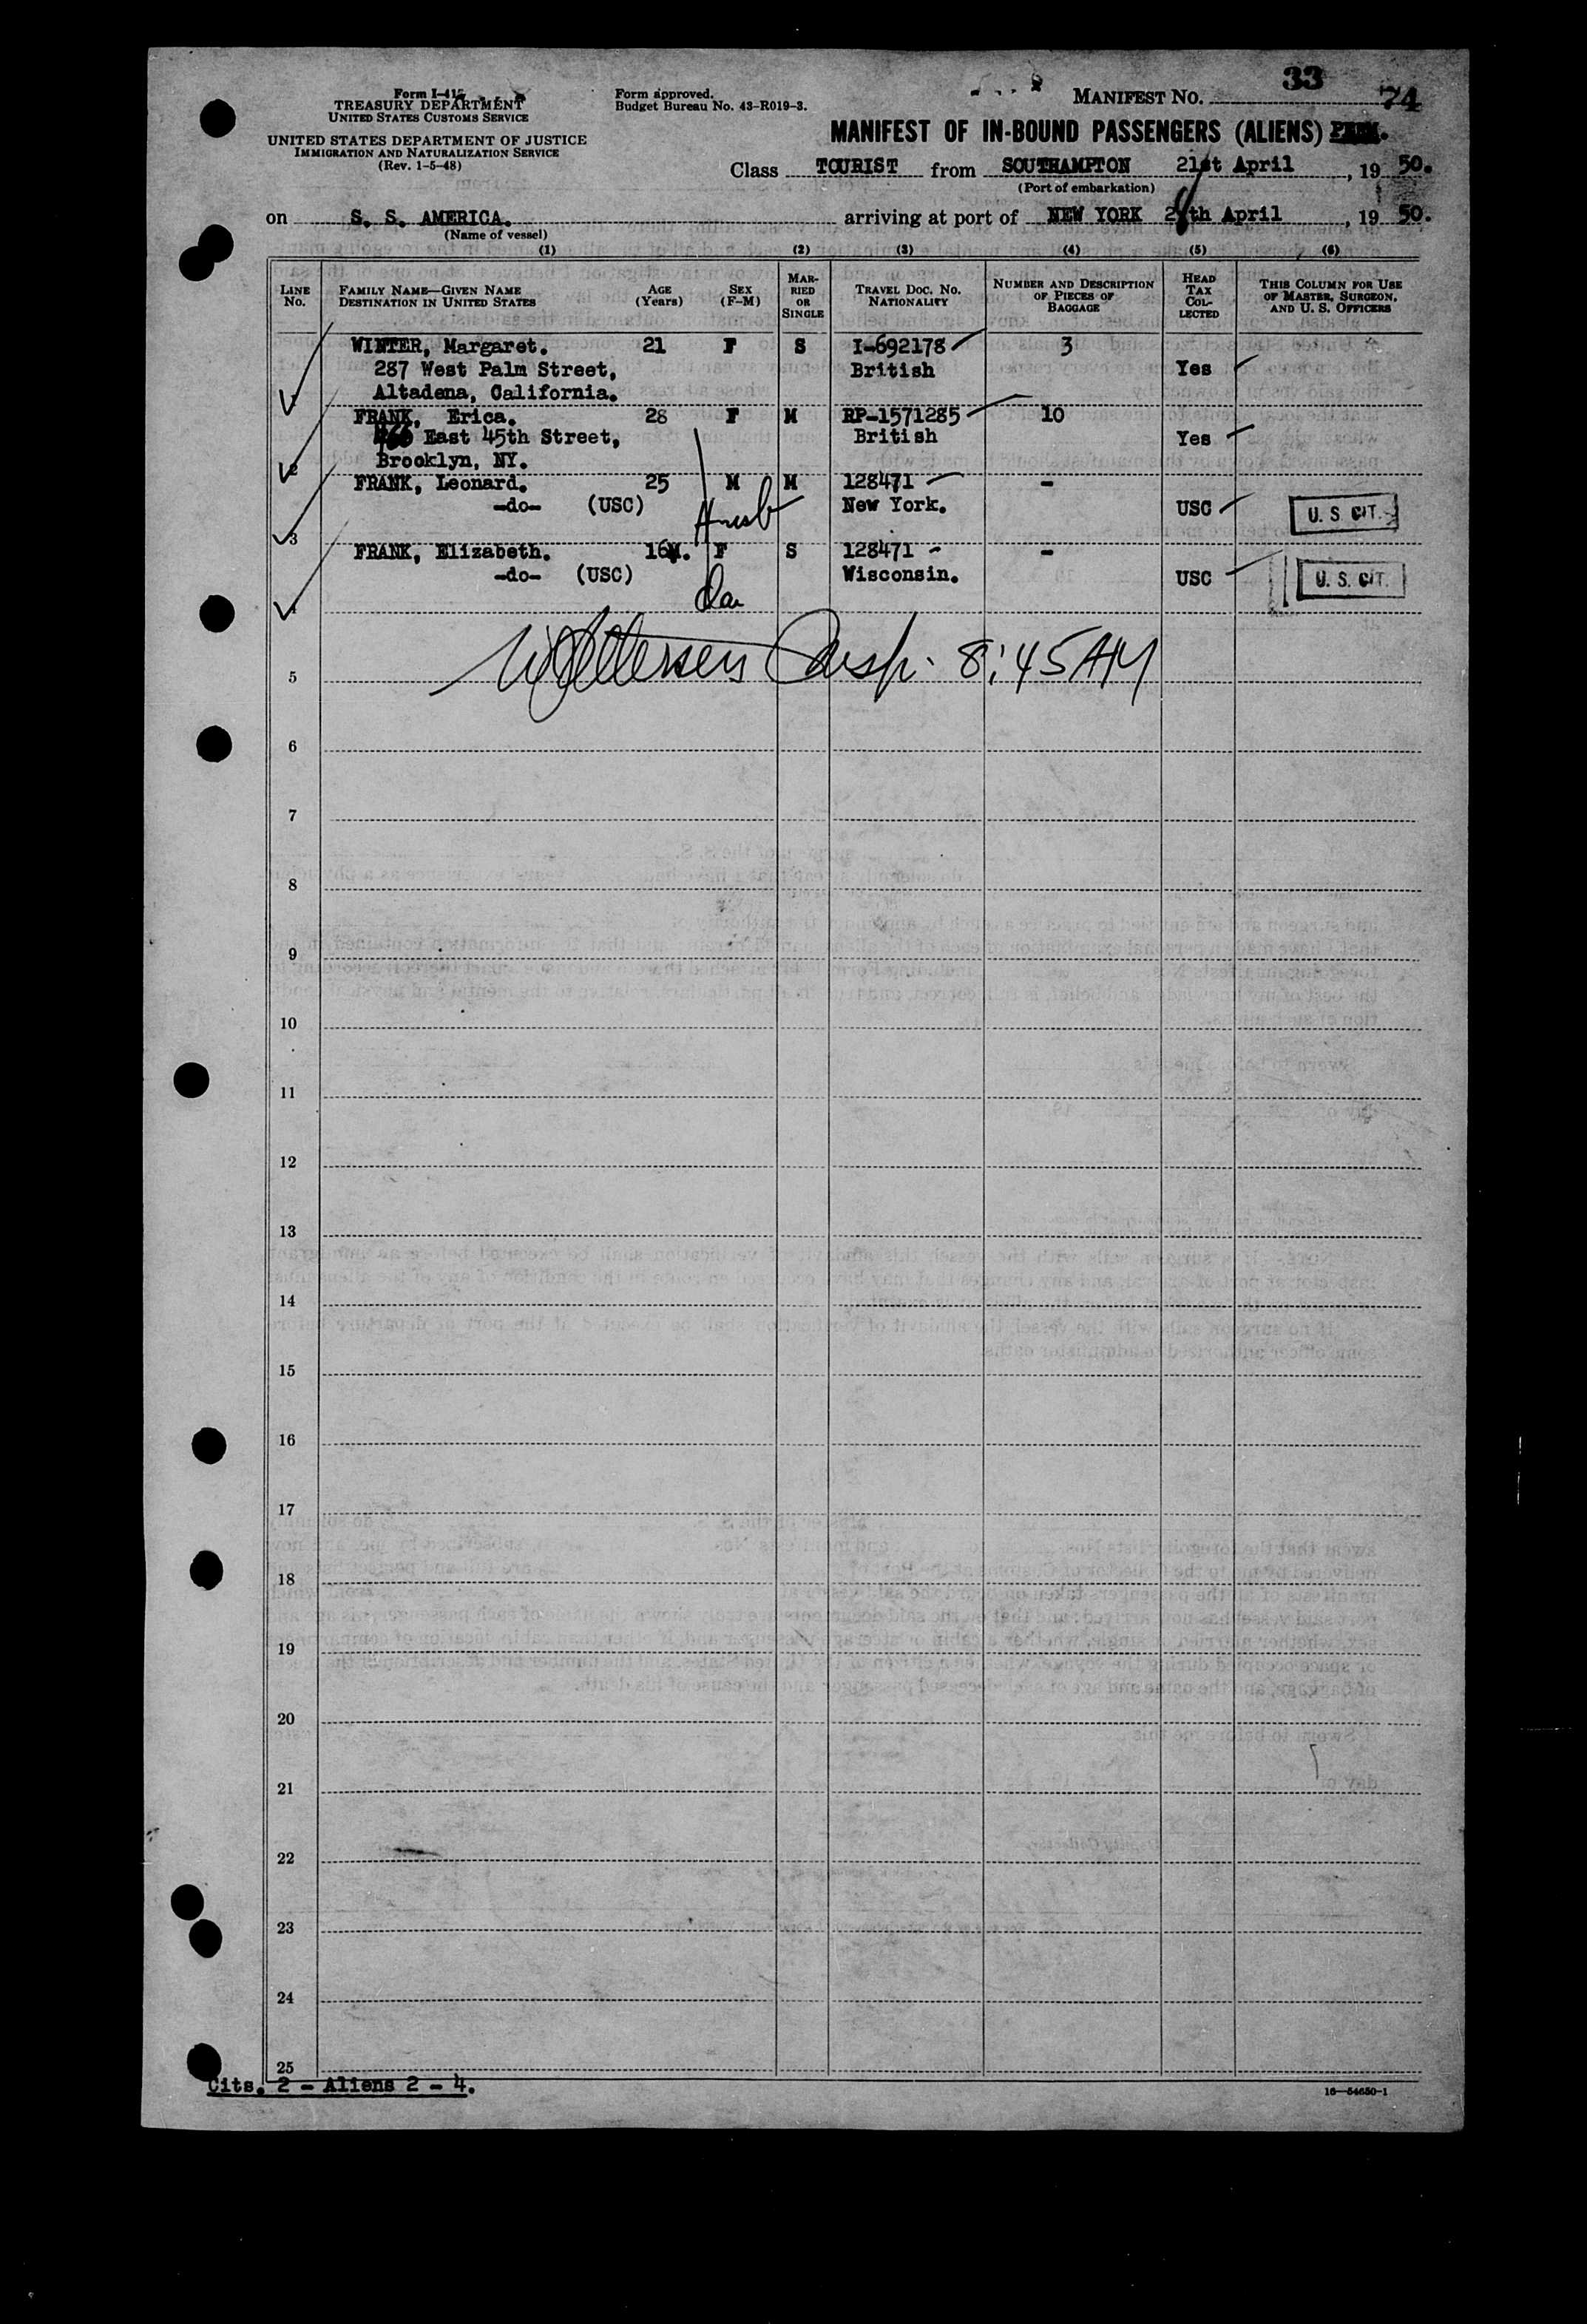 33
74
Form I-415
TREASURY DEPARTMENT
UNITED STATES CUSTOMS SERVICE
UNITED STATES DEPARTMENT OF JUSTICE
IMMIGRATION AND NATURALIZATION SERVICE
(Rev. 1-5-48)
Form approved.
Budget Bureau No. 43-R019-3.
MANIFEST NO.
MANIFEST OF IN-BOUND PASSENGERS (ALIENS)
Class TOURIST from SOUTHAMPTON 21st April, 19 50.
(Port of embarkation)
on S. S. AMERICA. arriving at port of NEW YORK 28th April, 19 50.
(Name of vessel)
(1) (2) (3) (4) (5) (6)
LINE No. FAMILY NAME—GIVEN NAME DESTINATION IN UNITED STATES AGE (Years) SEX (F-M) MARRIED OR SINGLE TRAVEL DOC. NO. NATIONALITY NUMBER AND DESCRIPTION OF PIECES OF BAGGAGE HEAD TAX COLLECTED THIS COLUMN FOR USE OF MASTER, SURGEON, AND U. S. OFFICERS
WINTER, Margaret. 21 F S I-692178 3
287 West Palm Street, British Yes
Altadena, California.
FRANK, Erica. 28 F M RP-1571285 10
East 45th Street, British Yes
2 Brooklyn, NY.
FRANK, Leonard. 25 M M 128471 -
-do- (USC) Husb New York. USC U. S. CIT.
3
FRANK, Elizabeth. 16M. F S 128471 -
-do- (USC) Wisconsin. USC U. S. CIT.
4 Dau
Insp. 8:45AM
5
6
7
8
9
10
11
12
13
14
15
16
17
18
19
20
21
22
23
24
25
Cits. 2 - Aliens 2 - 4.
16—54650-1